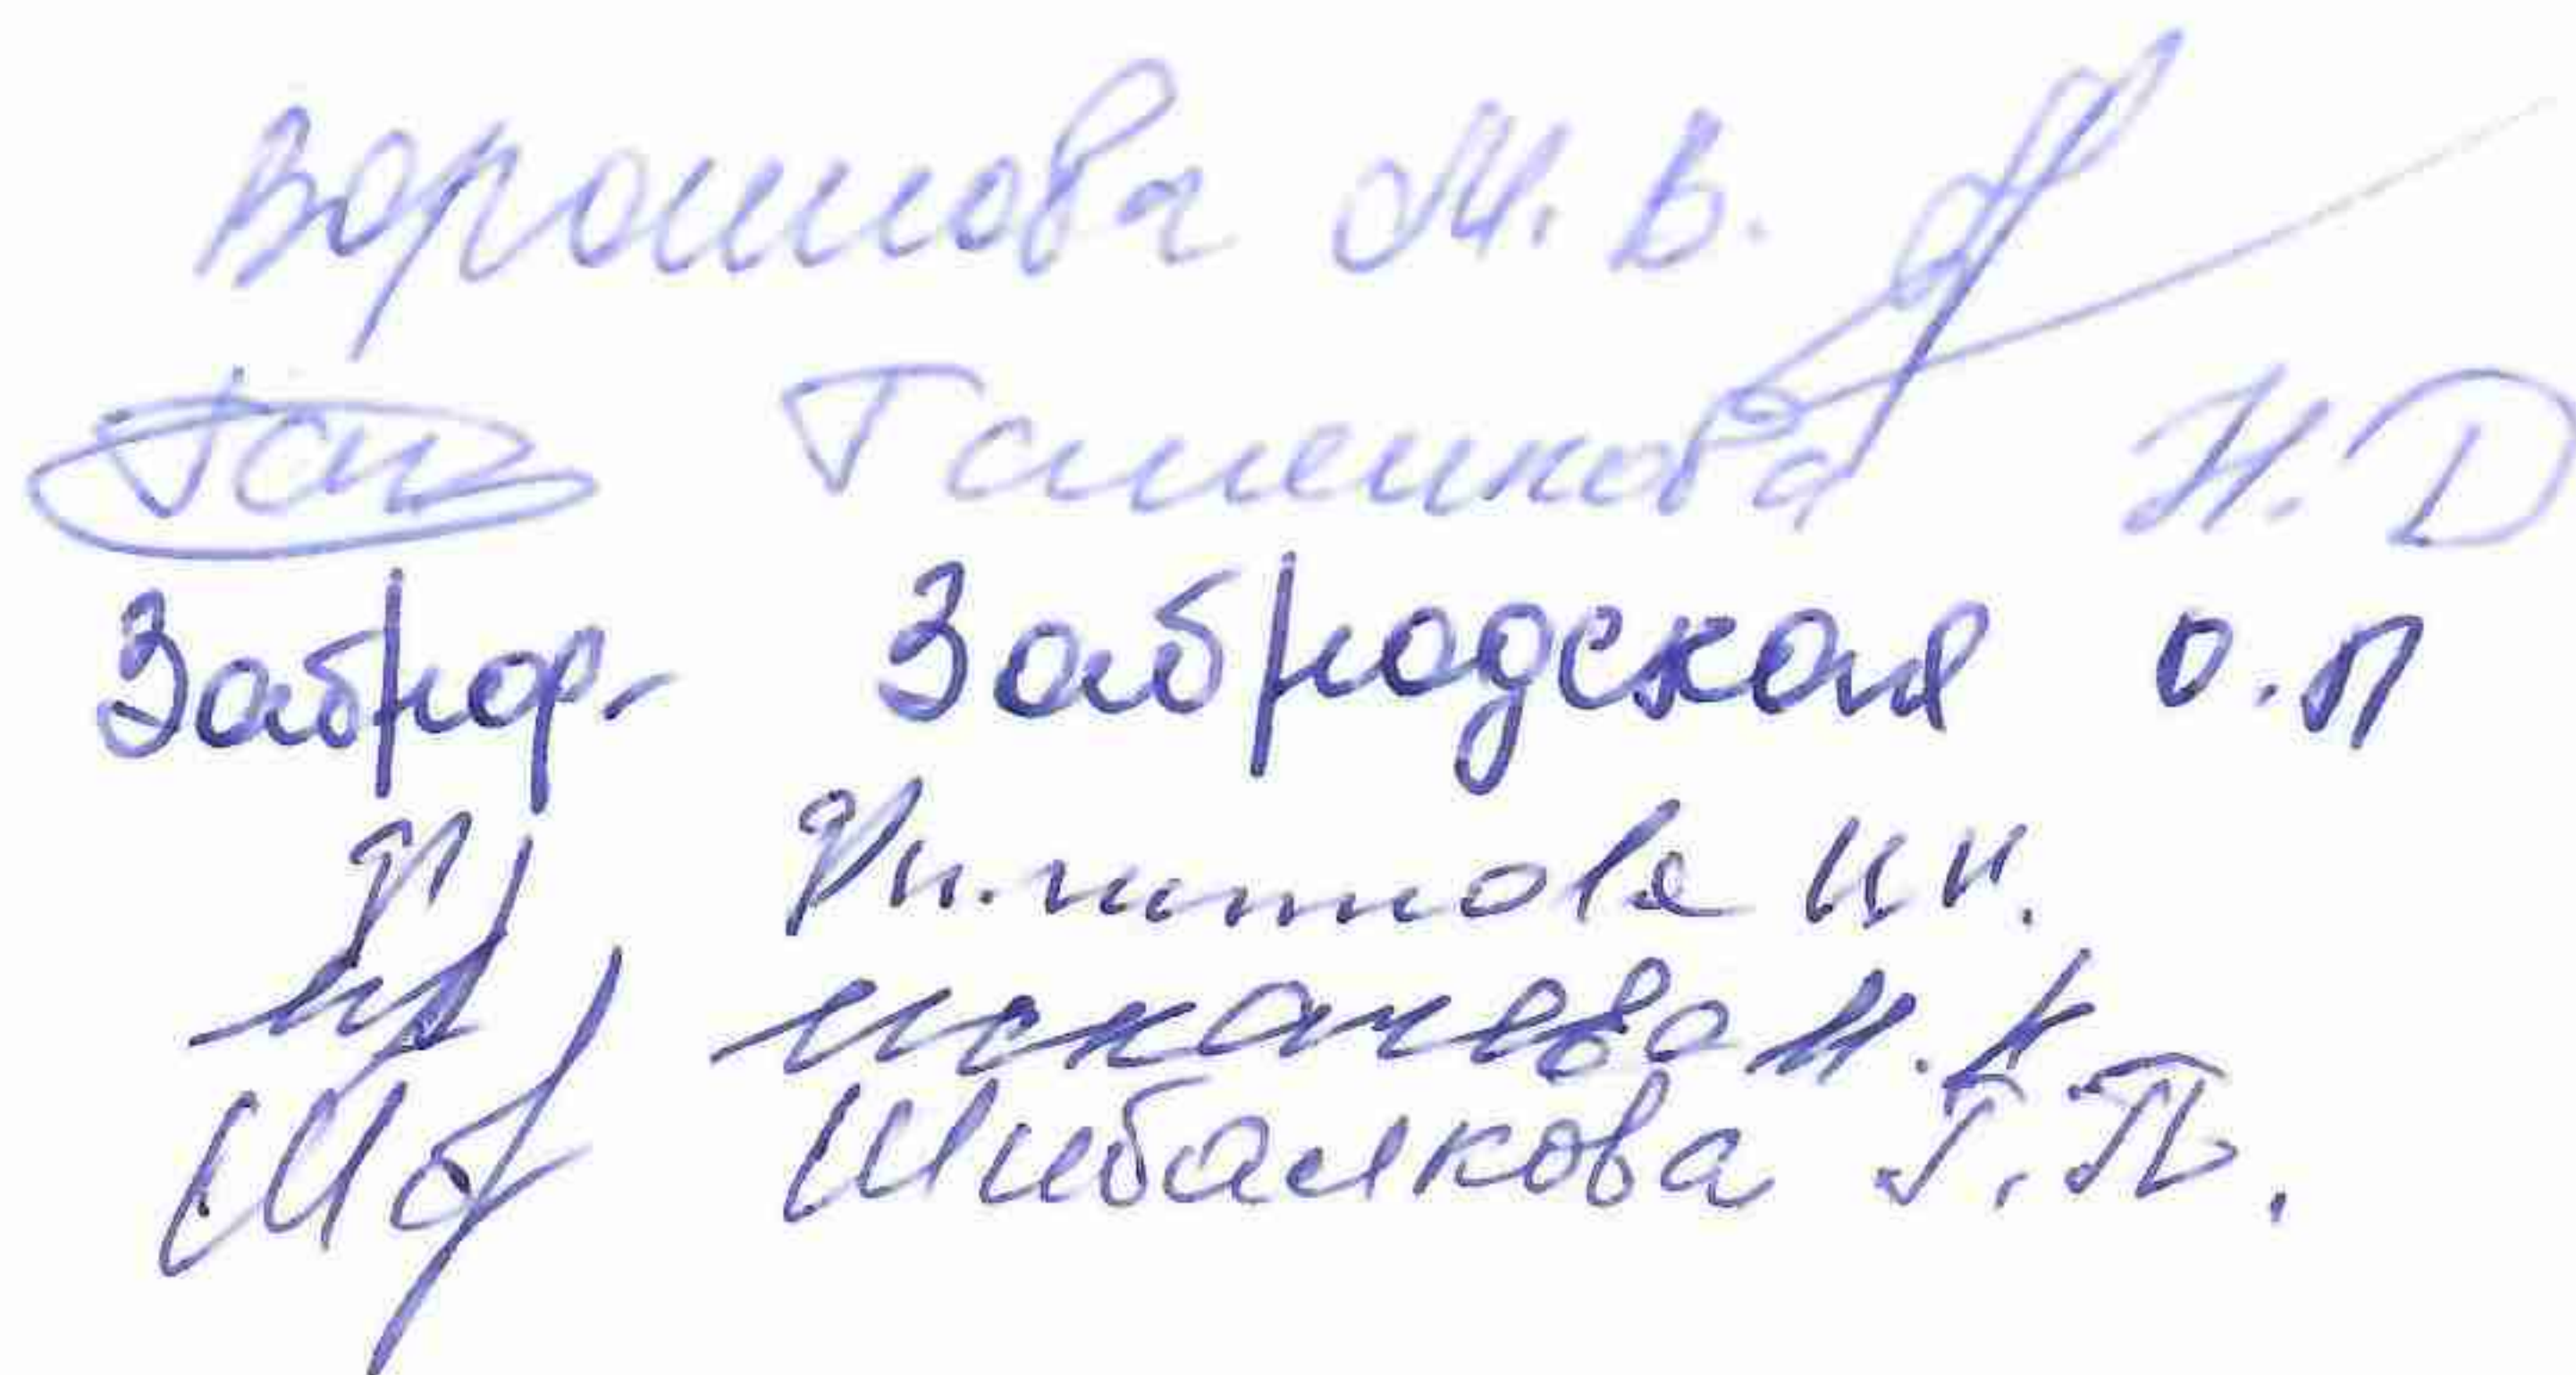 Ворошнова М. В.
Гапенкова Н. Д
Заброд. Забродская О.П
Филиппова И И.
Исканцева Н. А
Шибалкова Г. П.